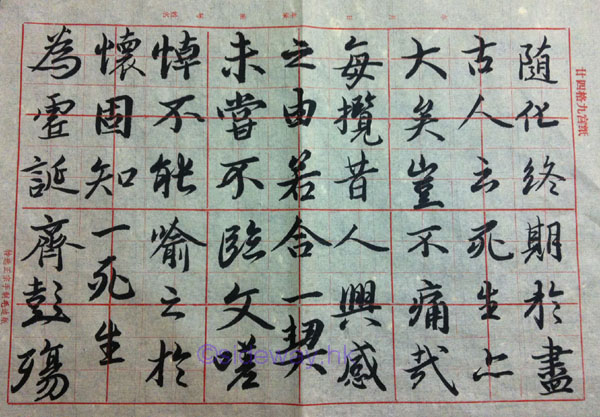 廿四格九宫纸
随化終期於盡
古人云死生亦
大矣豈不痛哉
每攬昔人興感
之由若合一契
未嘗不臨文嗟
悼不能喻之於
懷固知一死生
為虛誕齊彭殤